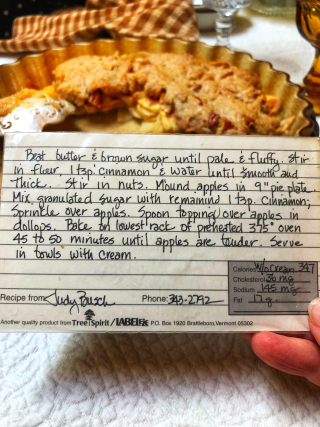 Beat butter & brown sugar until pale & fluffy. Stir
in flour, 1 tsp. cinnamon & water until smooth and
thick. Stir in nuts. Mound apples in 9" pie plate.
Mix granulated sugar with remaind 1 tsp. cinnamon;
Sprinkle over apples. Spoon topping over apples in
dollops. Bake on lowest rack of preheated 375° oven
45 to 50 minutes until apples are tender. Serve
in bowls with cream.
Calories W/o Cream 347
Cholesterol 36 mg
Sodium 145 mg
Fat 17 g
Recipe from Judy Phone: 343-2792
Another quality product from Tree Spirit / LABELEX P.O. Box 1920 Brattleboro, Vermont 05302